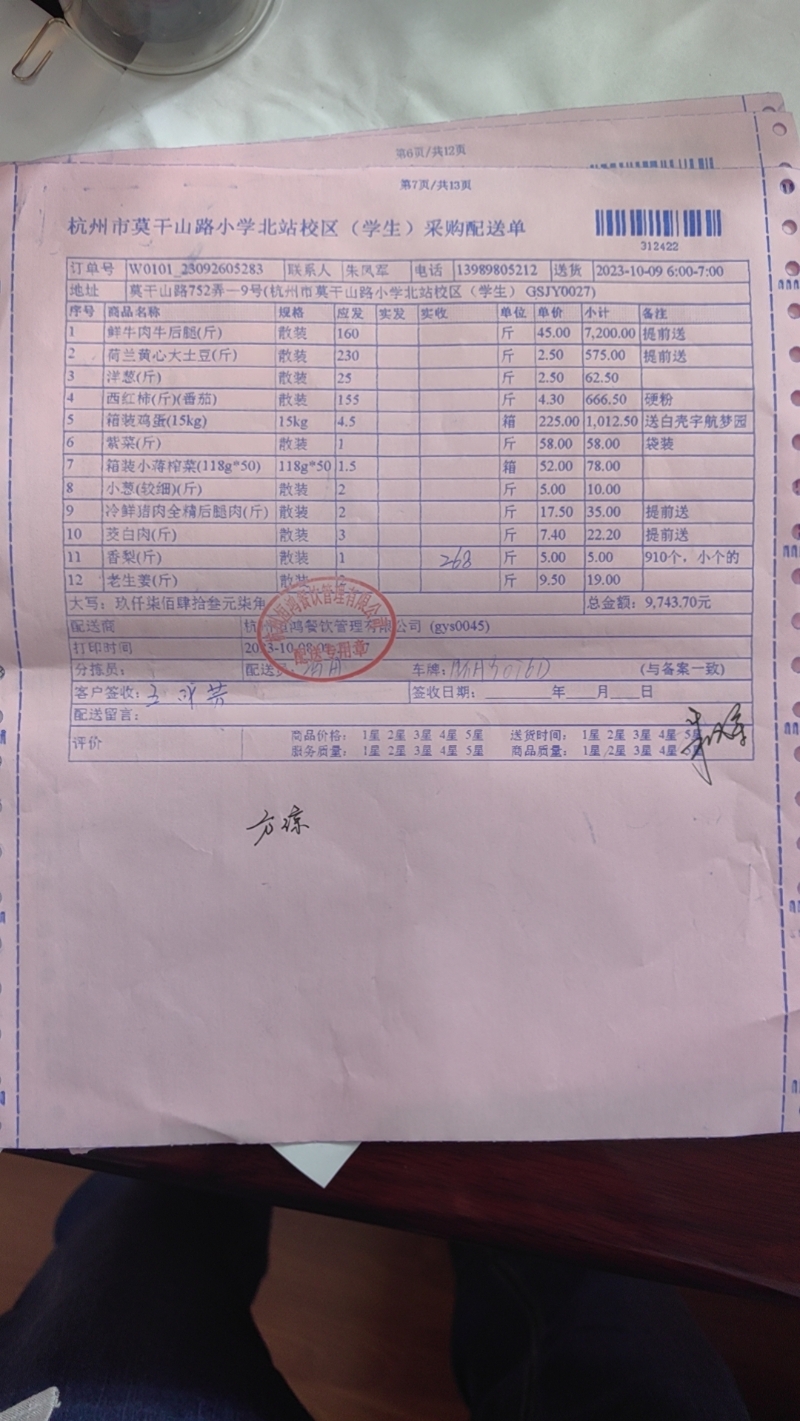 第6页/共12页
第7页/共13页
杭州市莫干山路小学北站校区（学生）采购配送单
312422
订单号 W0101_23092605283 联系人 朱凤军 电话 13989805212 送货 2023-10-09 6:00-7:00
地址 莫干山路752弄一9号(杭州市莫干山路小学北站校区（学生）GSJY0027)
序号 商品名称 规格 应发 实发 实收 单位 单价 小计 备注
1 鲜牛肉牛后腿(斤) 散装 160 斤 45.00 7,200.00 提前送
2 荷兰黄心大土豆(斤) 散装 230 斤 2.50 575.00 提前送
3 洋葱(斤) 散装 25 斤 2.50 62.50
4 西红柿(斤)(番茄) 散装 155 斤 4.30 666.50 硬粉
5 箱装鸡蛋(15kg) 15kg 4.5 箱 225.00 1,012.50 送白壳字航梦园
6 紫菜(斤) 散装 1 斤 58.00 58.00 袋装
7 箱装小薄榨菜(118g*50) 118g*50 1.5 箱 52.00 78.00
8 小葱(较细)(斤) 散装 2 斤 5.00 10.00
9 冷鲜猪肉全精后腿肉(斤) 散装 2 斤 17.50 35.00 提前送
10 茭白肉(斤) 散装 3 斤 7.40 22.20 提前送
11 香梨(斤) 散装 1 268 斤 5.00 5.00 910个，小个的
12 老生姜(斤) 散装 2 斤 9.50 19.00
大写：玖仟柒佰肆拾叁元柒角 总金额：9,743.70元
配送商 杭 鸿餐饮管理有限公司 (gys0045)
打印时间
配送专用章
分拣员： 配送员： 车牌： (与备案一致)
客户签收： 签收日期：______年____月____日
配送留言：
评价 商品价格： 1星 2星 3星 4星 5星 送货时间： 1星 2星 3星 4星 5星
服务质量： 1星 2星 3星 4星 5星 商品质量： 1星 2星 3星 4星
方琼